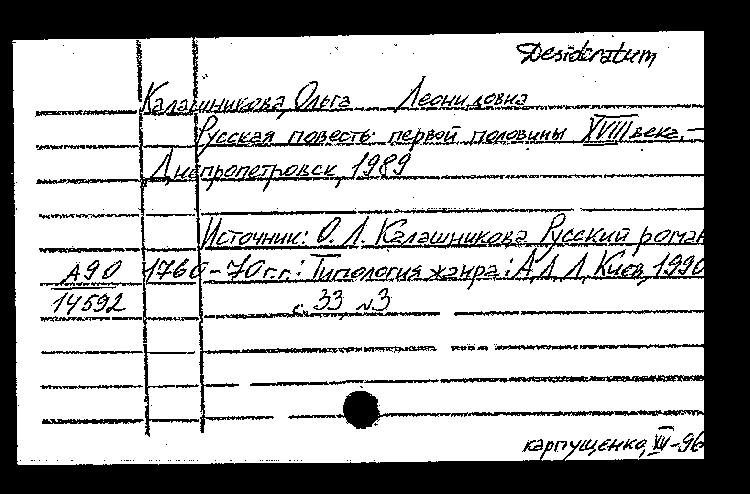 Desideratum
Калашникова, Ольга Леонидовна
Русская повесть первой половины XVIII века. –
Днепропетровск, 1989
Источник: О. Л. Калашникова Русский роман
А90 1760-70 г.г.: Типология жанра: А. Киев, 1990
14592 с. 33, №3
карпущенко, XII-96